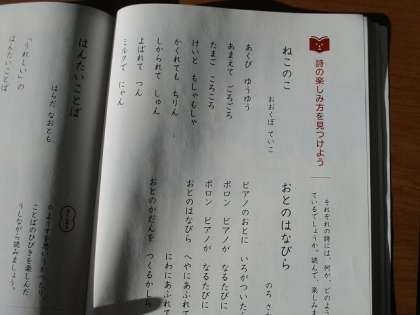 詩の楽しみ方を見つけよう
それぞれの詩には、何が、どのよう
ているでしょうか。読んで、楽しみま
ねこのこ
おおくぼ ていこ
あくび ゆうゆう
あまえて ごろごろ
たまご ころころ
けいと もしゃもしゃ
かくれても ちりん
しかられて しゅん
よばれて つん
ミルクで にゃん
おとのはなびら
のろ さか
ピアノのおとに いろがついたら
ポロン ピアノが なるたびに
ポロン ピアノが なるたびに
おとのはなびら へやにあふれて
にわにあふれて
おとのかだんを つくるかしら
はんたいことば
はらだ なおとも
「うれしい」の
はんたいことば
かようすを思いうかべたり、
ことばのひびきを楽しんだ
りしながら読みましょう。